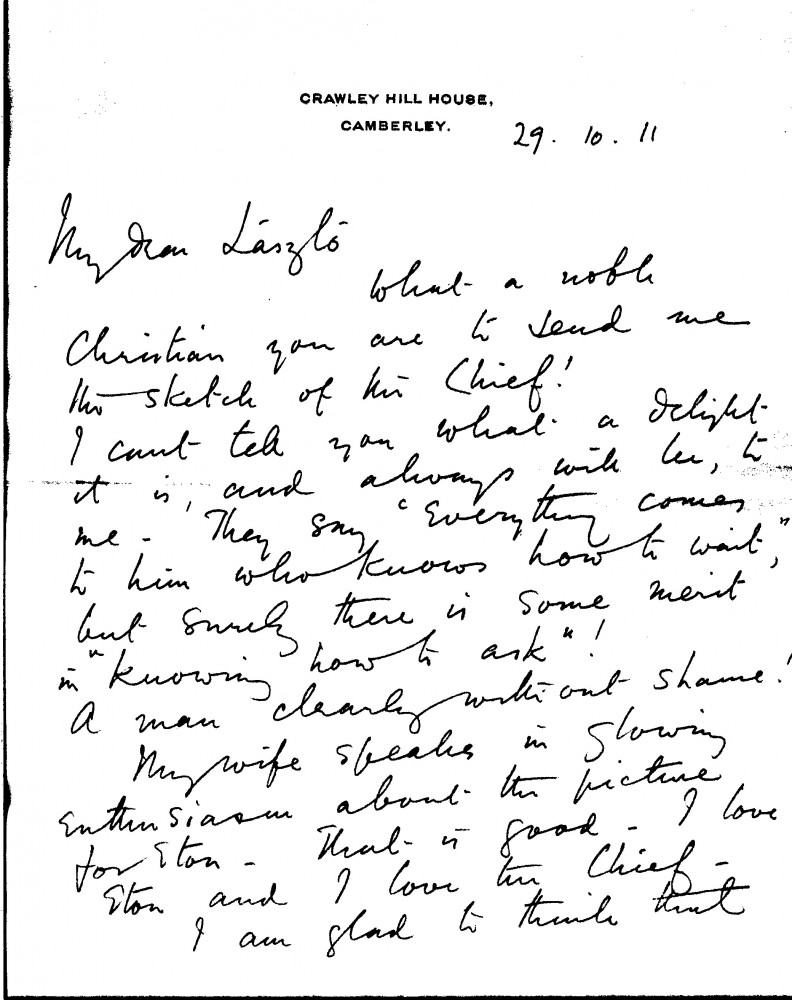 CRAWLEY HILL HOUSE,
CAMBERLEY.
29. 10. 11
My dear László
What a noble
Christian you are to send me
this sketch of the Chief!
I can't tell you what a delight
it is, and always will be, to
me - They say "Everything comes
to him who knows how to wait",
but surely there is some merit
in "knowing how to ask"!
A man clearly without shame!
My wife speaks in glowing
enthusiasm about the picture
for Eton - That is good - I love
Eton and I love the Chief -
I am glad to think that